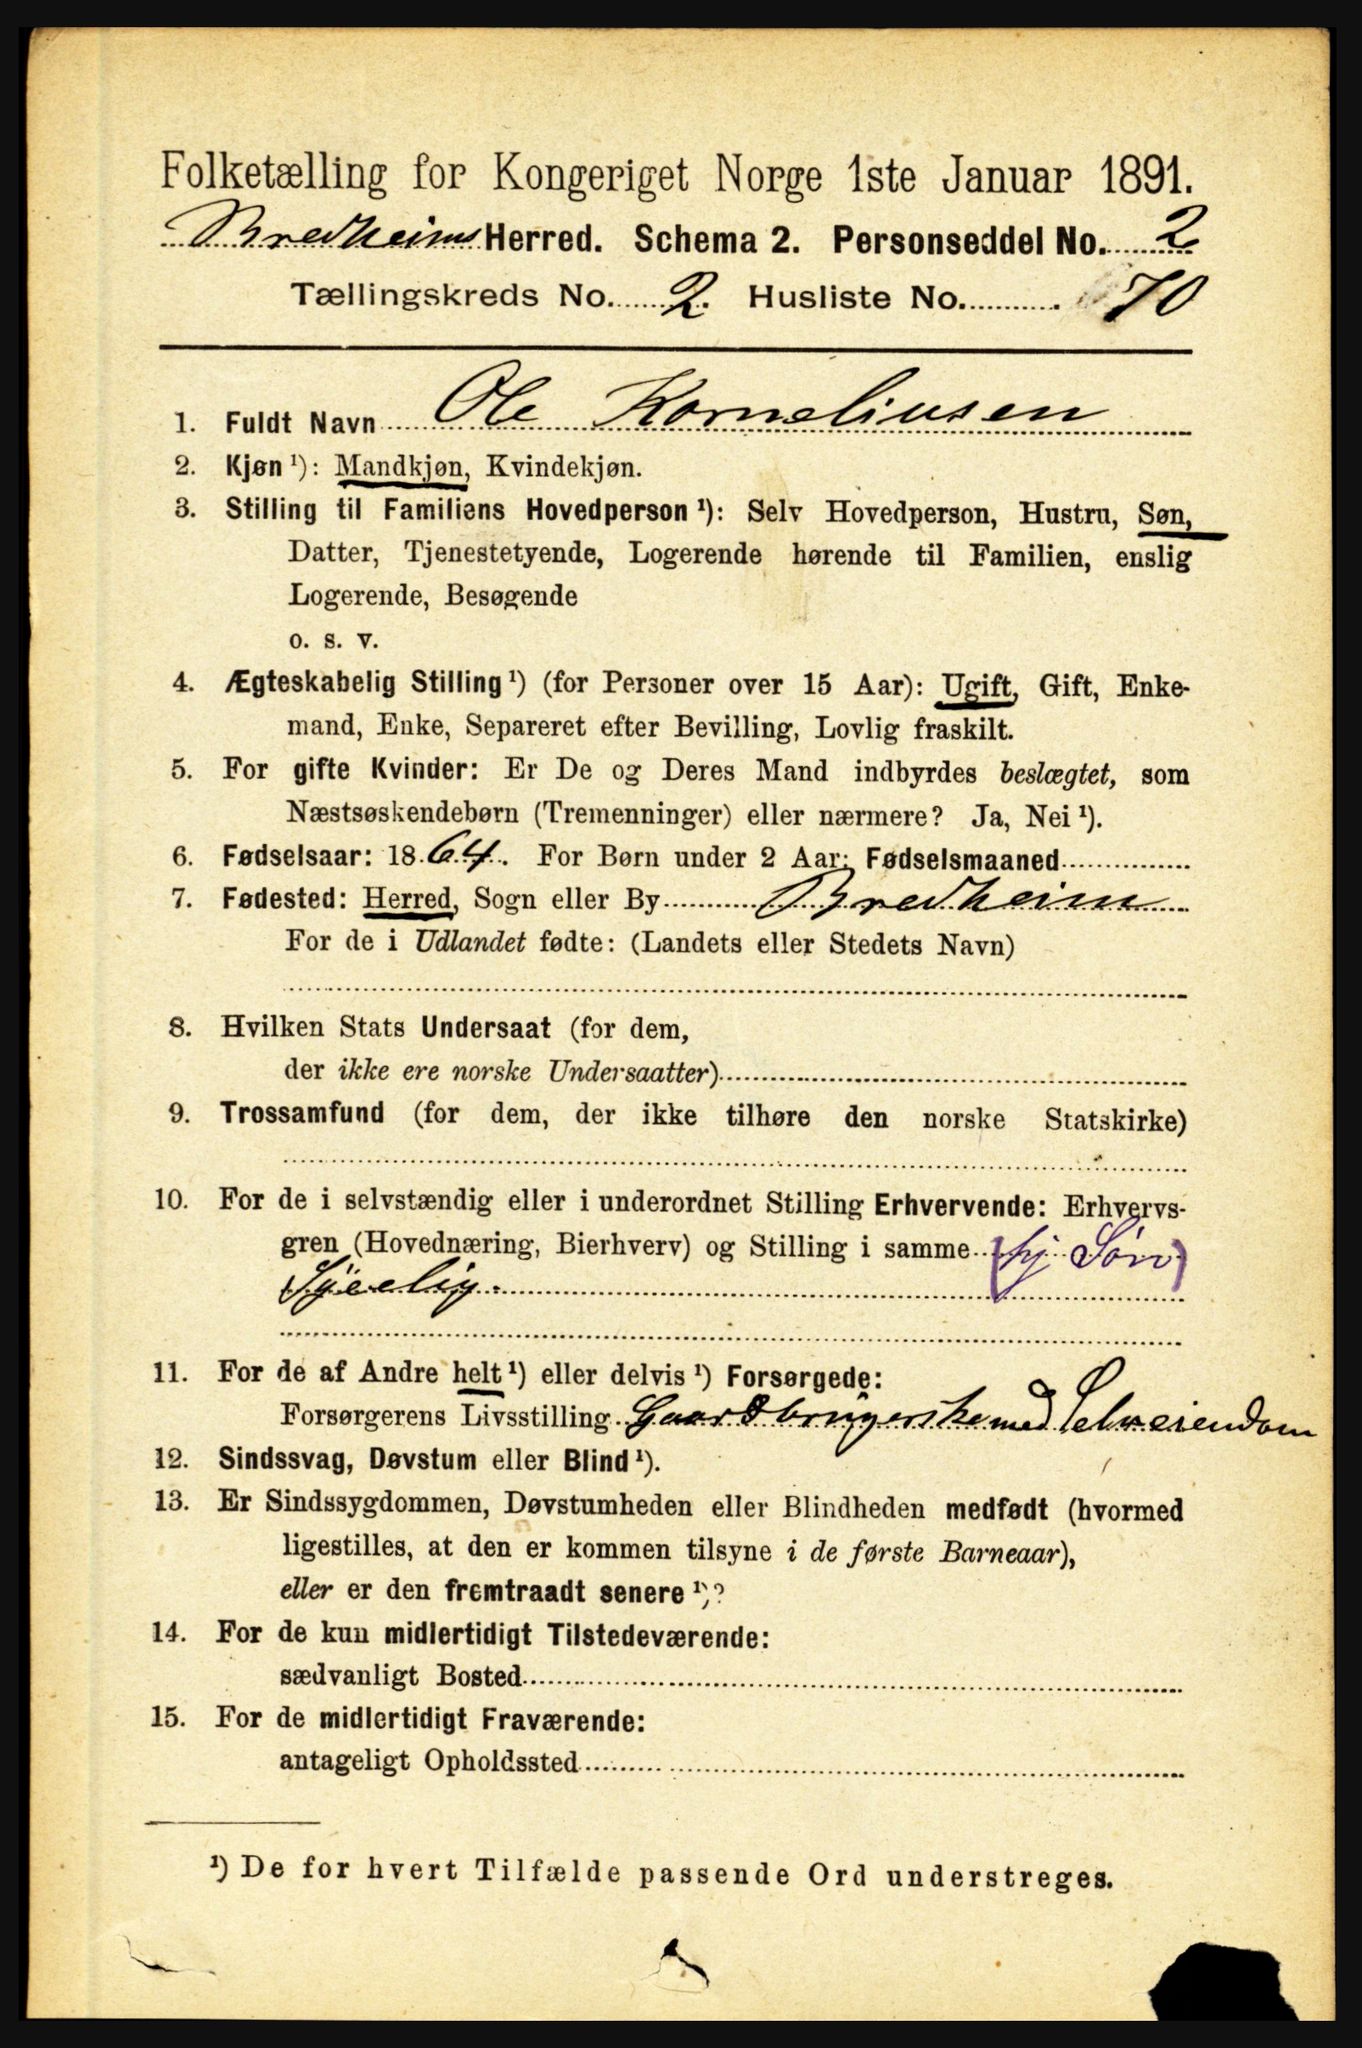 Folketælling for Kongeriget Norge 1ste Januar 1891.
Bredheims Herred. Schema 2. Personseddel No. 2
Tællingskreds No. 2. Husliste No. 70
1. Fuldt Navn Ole Korneliusen
2. Kjøn ¹): Mandkjøn, Kvindekjøn.
3. Stilling til Familiens Hovedperson ¹): Selv Hovedperson, Hustru, Søn,
Datter, Tjenestetyende, Logerende hørende til Familien, enslig
Logerende, Besøgende
o. s. v.
4. Ægteskabelig Stilling ¹) (for Personer over 15 Aar): Ugift, Gift, Enke-
mand, Enke, Separeret efter Bevilling, Lovlig fraskilt.
5. For gifte Kvinder: Er De og Deres Mand indbyrdes beslægtet, som
Næstsøskendebørn (Tremenninger) eller nærmere? Ja, Nei ¹).
6. Fødselsaar: 1864. For Børn under 2 Aar: Fødselsmaaned
7. Fødested: Herred, Sogn eller By Bredheim
For de i Udlandet fødte: (Landets eller Stedets Navn)
8. Hvilken Stats Undersaat (for dem,
der ikke ere norske Undersaatter)
9. Trossamfund (for dem, der ikke tilhøre den norske Statskirke)
10. For de i selvstændig eller i underordnet Stilling Erhvervende: Erhvervs-
gren (Hovednæring, Bierhverv) og Stilling i samme (hj Søn)
11. For de af Andre helt ¹) eller delvis ¹) Forsørgede:
Forsørgerens Livsstilling Gaardbrugerske med Selveiendom
12. Sindssvag, Døvstum eller Blind ¹).
13. Er Sindssygdommen, Døvstumheden eller Blindheden medfødt (hvormed
ligestilles, at den er kommen tilsyne i de første Barneaar),
eller er den fremtraadt senere ¹)?
14. For de kun midlertidigt Tilstedeværende:
sædvanligt Bosted
15. For de midlertidigt Fraværende:
antageligt Opholdssted
¹) De for hvert Tilfælde passende Ord understreges.